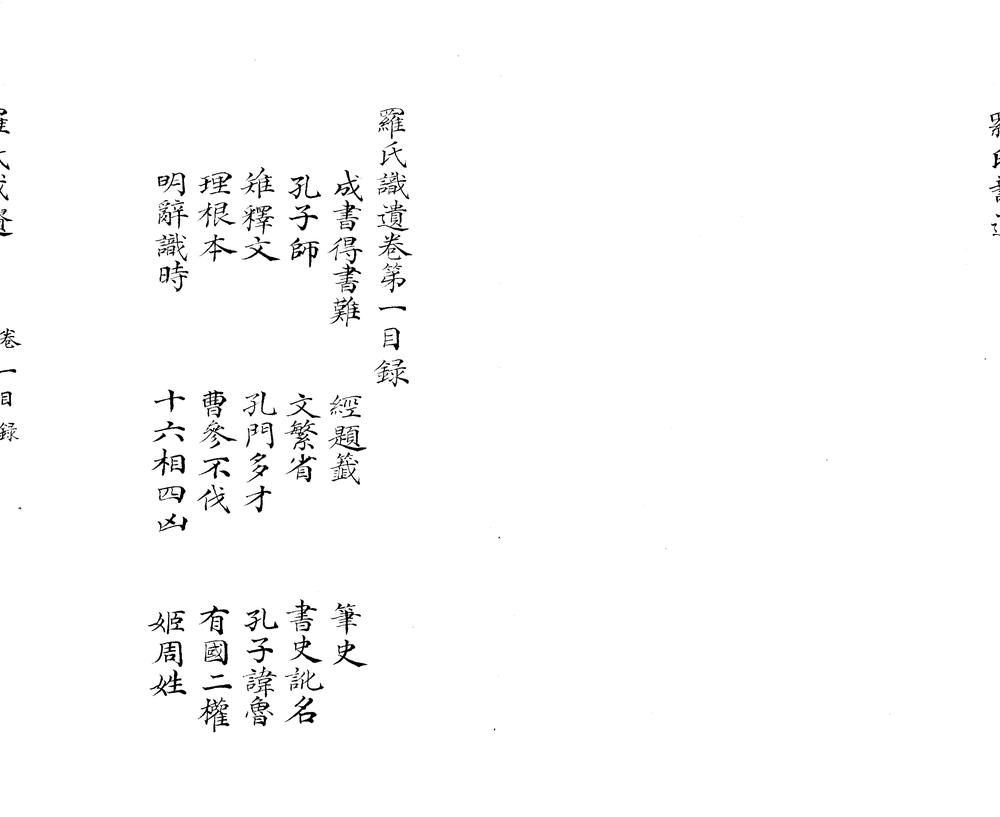 羅氏識遺卷第一目錄
成書得書難　經題籤　筆史
孔子師　文繁省　書史訛名
雉釋文　孔門多才　孔子諱魯
理根本　曹參不伐　有國二權
明辭識時　十六相四凶　姬周姓
卷一目錄